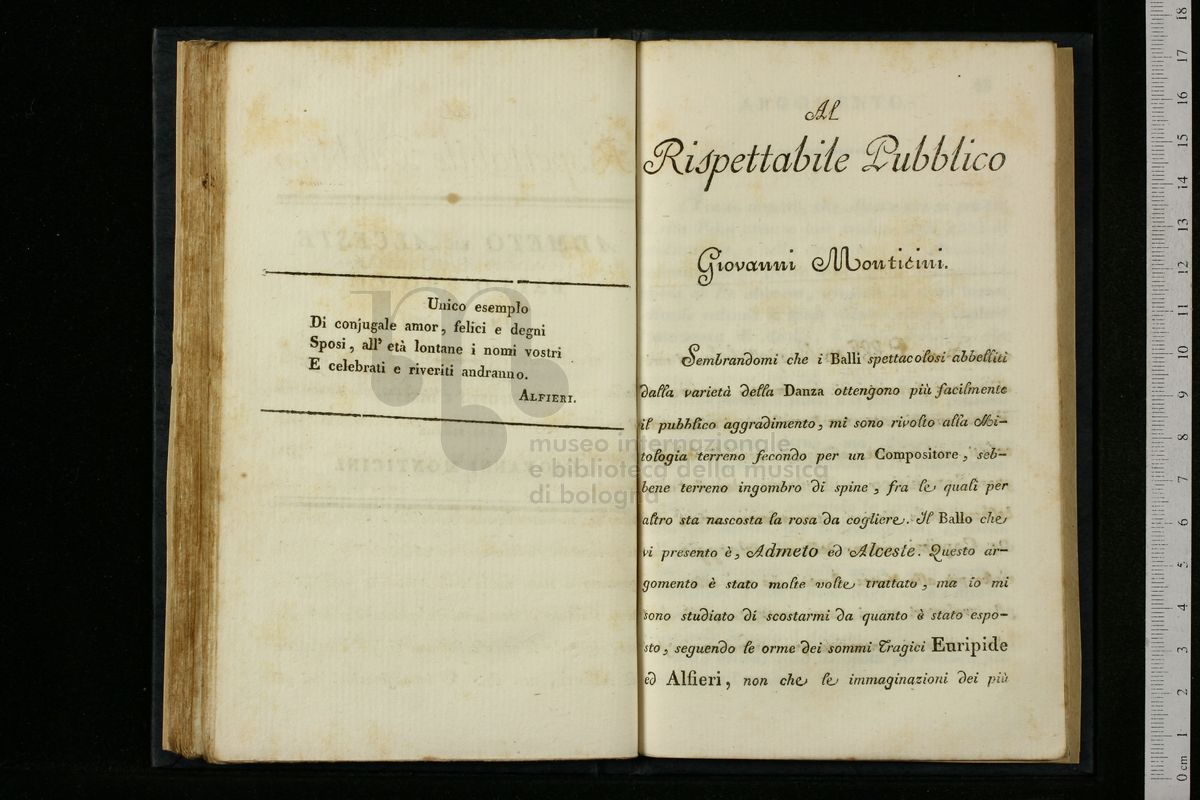 Unico esemplo
Di conjugale amor, felici e degni
Sposi, all' età lontane i nomi vostri
E celebrati e riveriti andranno.
ALFIERI.
museo internazionale
e biblioteca della musica
di bologna
Al
Rispettabile Pubblico
Giovanni Monticini.
Sembrandomi che i Balli spettacolosi abbelliti
dalla varietà della Danza ottengono più facilmente
il pubblico aggradimento, mi sono rivolto alla Mi-
tologia terreno fecondo per un Compositore, seb-
bene terreno ingombro di spine, fra le quali per
altro sta nascosta la rosa da cogliere. Il Ballo che
vi presento è, Admeto ed Alceste. Questo ar-
gomento è stato molte volte trattato, ma io mi
sono studiato di scostarmi da quanto è stato espo-
sto, seguendo le orme dei sommi Tragici Euripide
ed Alfieri, non che le immaginazioni dei più
0 cm 1 2 3 4 5 6 7 8 9 10 11 12 13 14 15 16 17 18